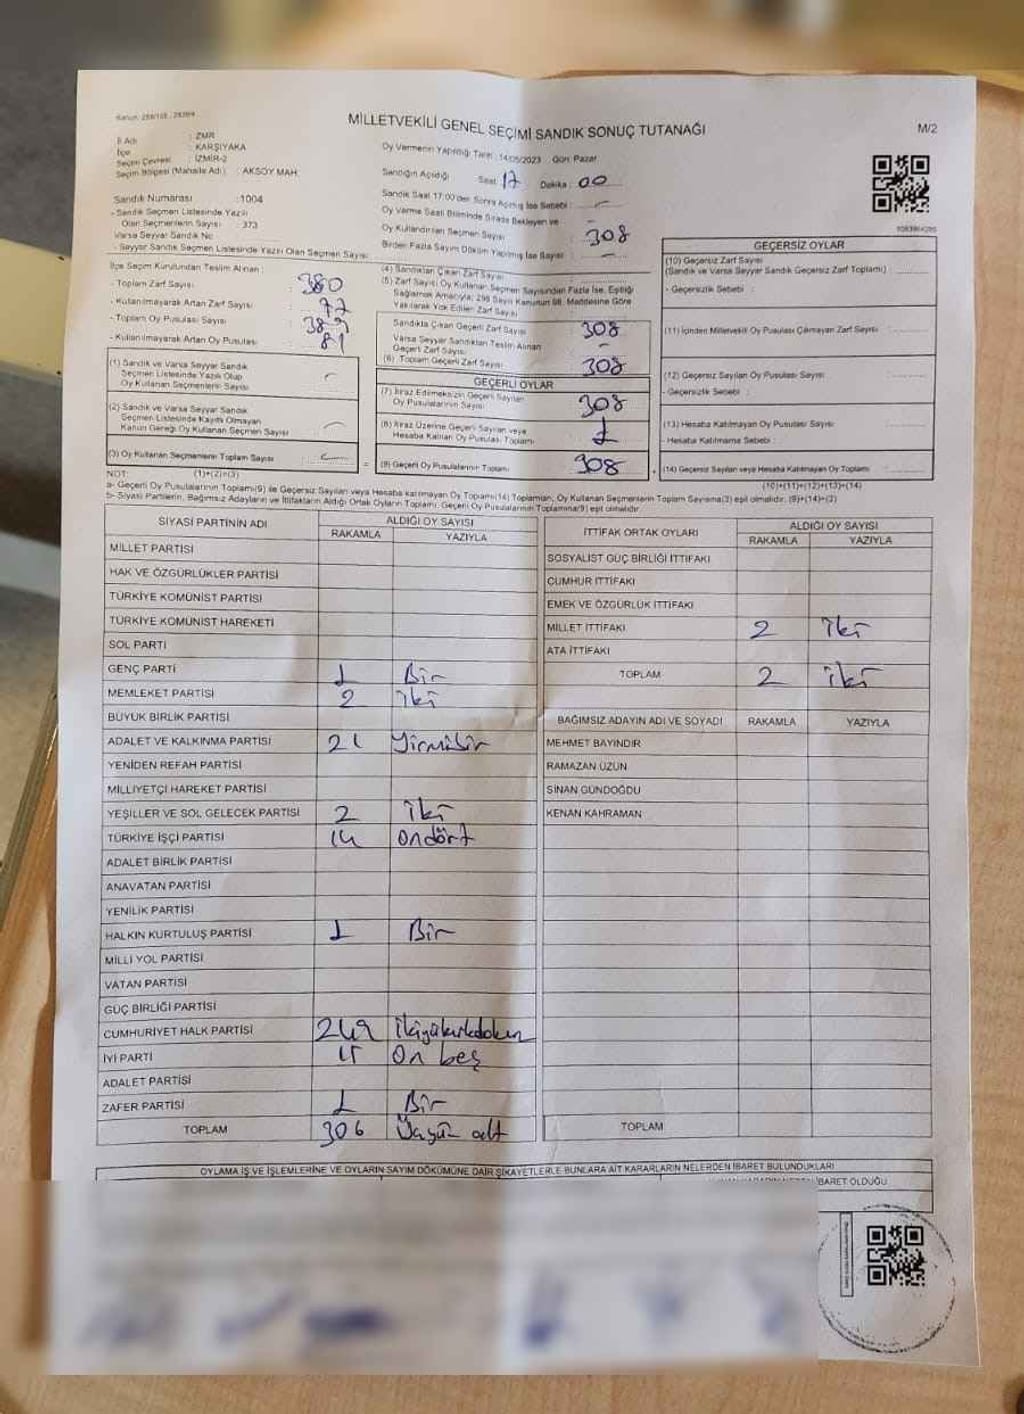 MİLLETVEKİLİ GENEL SEÇİMİ SANDIK SONUÇ TUTANAĞI
M/2
İl Adı : İZMİR
İlçe : KARŞIYAKA
Seçim Çevresi : İZMİR-2
Seçim Bölgesi (Mahalle Adı) : AKSOY MAH.
Sandık Numarası :1004
- Sandık Seçmen Listesinde Yazılı
Olan Seçmenlerin Sayısı : 373
Varsa Seyyar Sandık No
- Seyyar Sandık Seçmen Listesinde Yazılı Olan Seçmen Sayısı
Oy Vermenin Yapıldığı Tarih : 14/05/2023 Gün: Pazar
Sandığın Açıldığı Saat 17 Dakika : 00
Sandık Saat 17:00'den Sonra Açılmış İse Sebebi :
Oy Verme Saati Bitiminde Sırada Bekleyen ve
Oy Kullandırılan Seçmen Sayısı : 308
Birden Fazla Sayım Döküm Yapılmış İse Sayısı
İlçe Seçim Kurulundan Teslim Alınan :
- Toplam Zarf Sayısı : 380
- Kullanılmayarak Artan Zarf Sayısı : 72
- Toplam Oy Pusulası Sayısı : 389
- Kullanılmayarak Artan Oy Pusulası : 81
(1) Sandık ve Varsa Seyyar Sandık
Seçmen Listesinde Yazılı Olup
Oy Kullanan Seçmenlerin Sayısı
(2) Sandık ve Varsa Seyyar Sandık
Seçmen Listesinde Kayıtlı Olmayan
Kanun Gereği Oy Kullanan Seçmen Sayısı
(3) Oy Kullanan Seçmenlerin Toplam Sayısı
NOT: (1)+(2)=(3)
(4) Sandıktan Çıkan Zarf Sayısı
(5) Zarf Sayısı Oy Kullanan Seçmen Sayısından Fazla İse, Eşitliği
Sağlamak Amacıyla; 298 Sayılı Kanunun 98. Maddesine Göre
Yakılarak Yok Edilen Zarf Sayısı
Sandıkta Çıkan Geçerli Zarf Sayısı 308
Varsa Seyyar Sandıktan Teslim Alınan
Geçerli Zarf Sayısı -
(6) Toplam Geçerli Zarf Sayısı 308
GEÇERLİ OYLAR
(7) İtiraz Edilmeksizin Geçerli Sayılan
Oy Pusulalarının Sayısı 308
(8) İtiraz Üzerine Geçerli Sayılan veya
Hesaba Katılan Oy Pusulası Toplamı
(9) Geçerli Oy Pusulalarının Toplamı 308
GEÇERSİZ OYLAR
(10) Geçersiz Zarf Sayısı
(Sandık ve Varsa Seyyar Sandık Geçersiz Zarf Toplamı)
- Geçersizlik Sebebi :
(11) İçinden Milletvekili Oy Pusulası Çıkmayan Zarf Sayısı
(12) Geçersiz Sayılan Oy Pusulası Sayısı
- Geçersizlik Sebebi :
(13) Hesaba Katılmayan Oy Pusulası Sayısı
- Hesaba Katılmama Sebebi
(14) Geçersiz Sayılan veya Hesaba Katılmayan Oy Toplamı
(10)+(11)+(12)+(13)=(14)
a- Geçerli Oy Pusulalarının Toplamı(9) ile Geçersiz Sayılan veya Hesaba katılmayan Oy Toplamı(14) Toplamları, Oy Kullanan Seçmenlerin Toplam Sayısına(3) eşit olmalıdır. (9)+(14)=(3)
b- Siyasi Partilerin, Bağımsız Adayların ve İttifakların Aldığı Ortak Oyların Toplamı, Geçerli Oy Pusulalarının Toplamına(9) eşit olmalıdır.
SİYASİ PARTİNİN ADI ALDIĞI OY SAYISI
RAKAMLA YAZIYLA
MİLLET PARTİSİ
HAK VE ÖZGÜRLÜKLER PARTİSİ
TÜRKİYE KOMÜNİST PARTİSİ
TÜRKİYE KOMÜNİST HAREKETİ
SOL PARTİ
GENÇ PARTİ 1 Bir
MEMLEKET PARTİSİ 2 iki
BÜYÜK BİRLİK PARTİSİ
ADALET VE KALKINMA PARTİSİ 21 Yirmibir
YENİDEN REFAH PARTİSİ
MİLLİYETÇİ HAREKET PARTİSİ
YEŞİLLER VE SOL GELECEK PARTİSİ 2 İki
TÜRKİYE İŞÇİ PARTİSİ 14 ondört
ADALET BİRLİK PARTİSİ
ANAVATAN PARTİSİ
YENİLİK PARTİSİ
HALKIN KURTULUŞ PARTİSİ 1 Bir
MİLLİ YOL PARTİSİ
VATAN PARTİSİ
GÜÇ BİRLİĞİ PARTİSİ
CUMHURİYET HALK PARTİSİ 249
İYİ PARTİ 15 On beş
ADALET PARTİSİ
ZAFER PARTİSİ 1 Bir
TOPLAM 306
İTTİFAK ORTAK OYLARI ALDIĞI OY SAYISI
RAKAMLA YAZIYLA
SOSYALİST GÜÇ BİRLİĞİ İTTİFAKI
CUMHUR İTTİFAKI
EMEK VE ÖZGÜRLÜK İTTİFAKI
MİLLET İTTİFAKI 2 İki
ATA İTTİFAKI
TOPLAM 2 iki
BAĞIMSIZ ADAYIN ADI VE SOYADI RAKAMLA YAZIYLA
MEHMET BAYINDIR
RAMAZAN UZUN
SİNAN GÜNDOĞDU
KENAN KAHRAMAN
TOPLAM
OYLAMA İŞ VE İŞLEMLERİNE VE OYLARIN SAYIM DÖKÜMÜNE DAİR ŞİKAYETLERLE BUNLARA AİT KARARLARIN NELERDEN İBARET BULUNDUKLARI
İBARET OLDUĞU